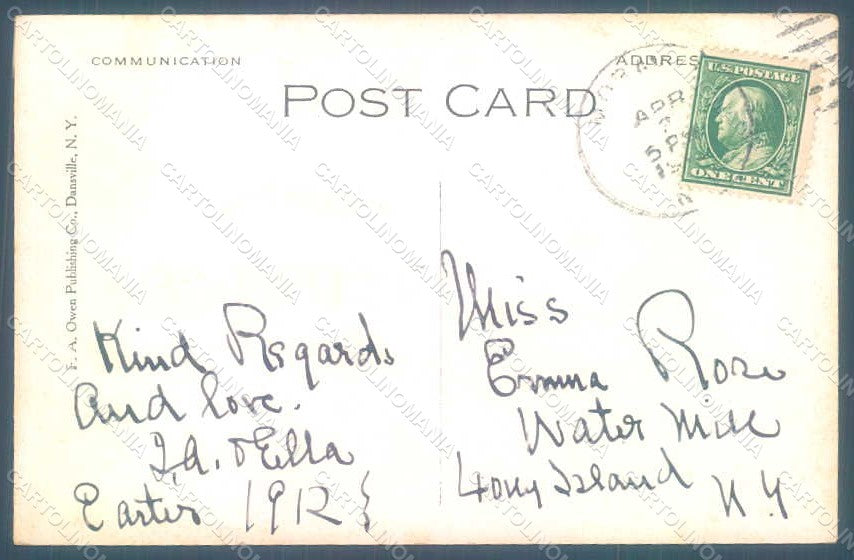 COMMUNICATION
POST CARD
ADDRES
U.S. POSTAGE
ONE CENT
APR
5 PM
F. A. Owen Publishing Co., Dansville, N. Y.
Kind Regards
and love.
J.A. & Ella
Easter 1912
Miss
Emma Rose
Water Mill
Long Island N.Y
CARTOLINOMANIA